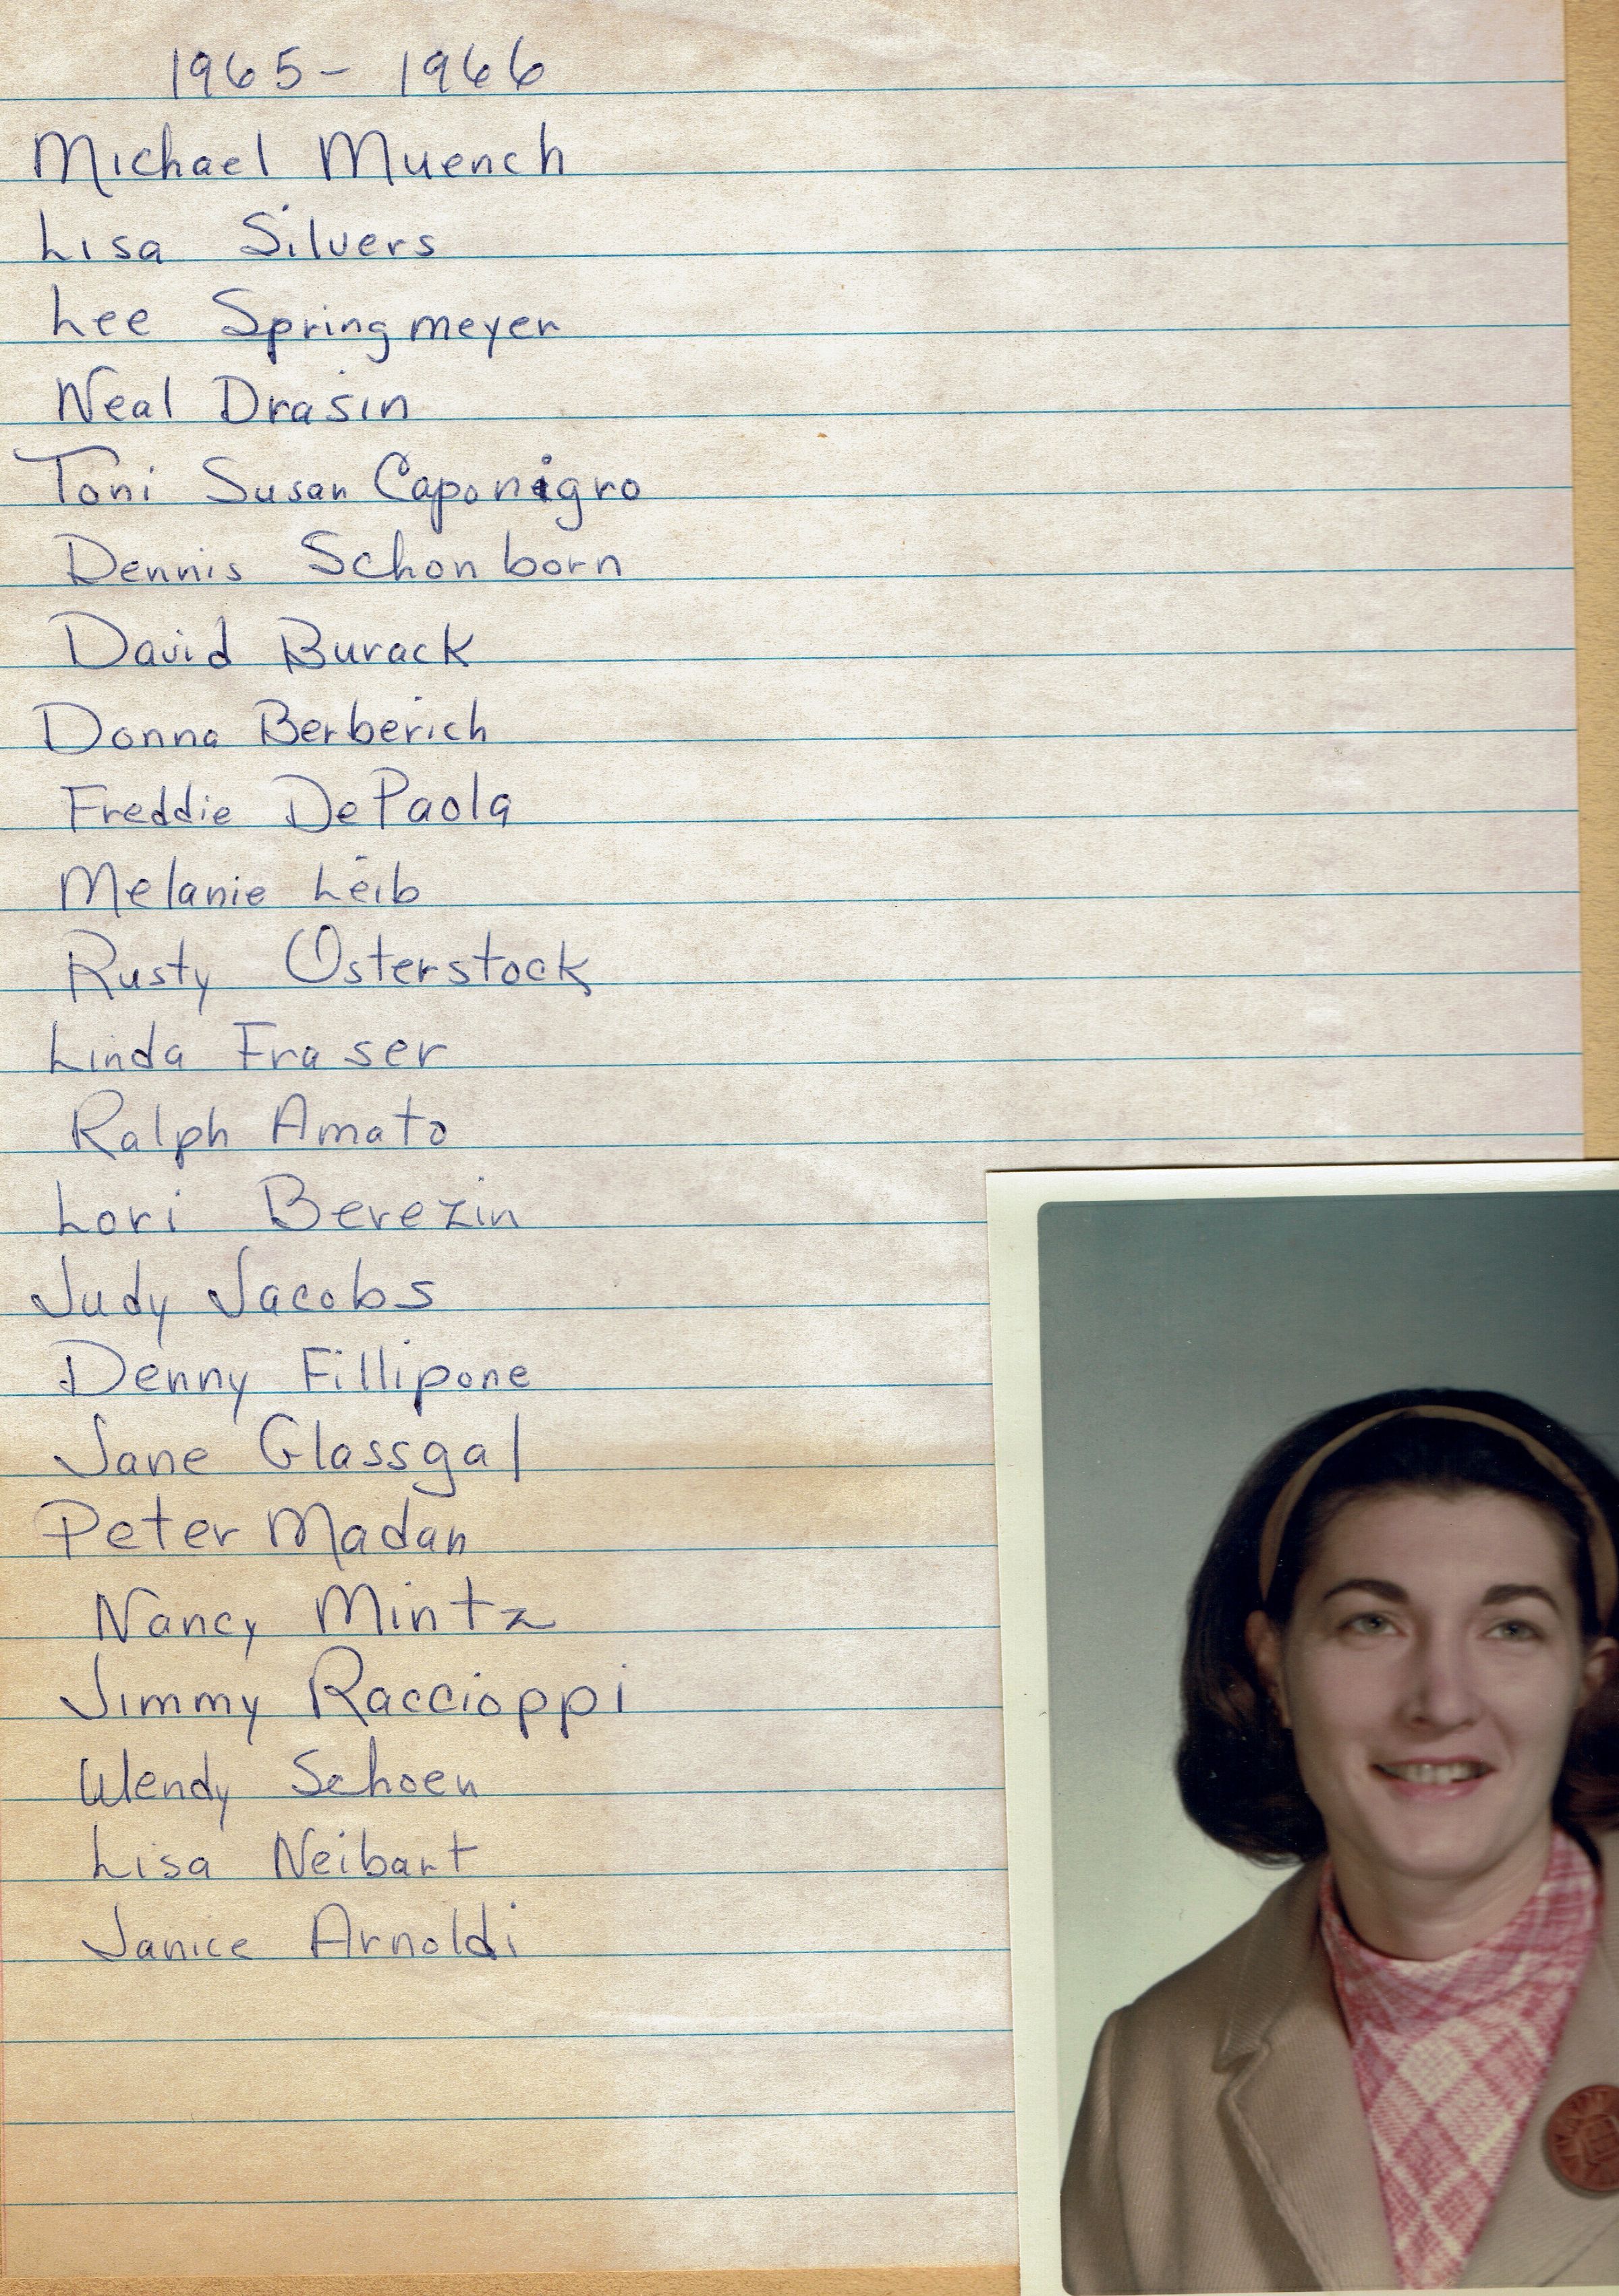 1965- 1966
Michael Muench
Lisa Silvers
Lee Springmeyer
Neal Drasin
Toni Susan Caponigro
Dennis Schonborn
David Burack
Donna Berberich
Freddie DePaola
Melanie Leib
Rusty Osterstock
Linda Fraser
Ralph Amato
Lori Berezin
Judy Jacobs
Denny Fillipone
Jane Glassgal
Peter Madan
Nancy Mintz
Jimmy Raccioppi
Wendy Schoen
Lisa Neibart
Janice Arnoldi